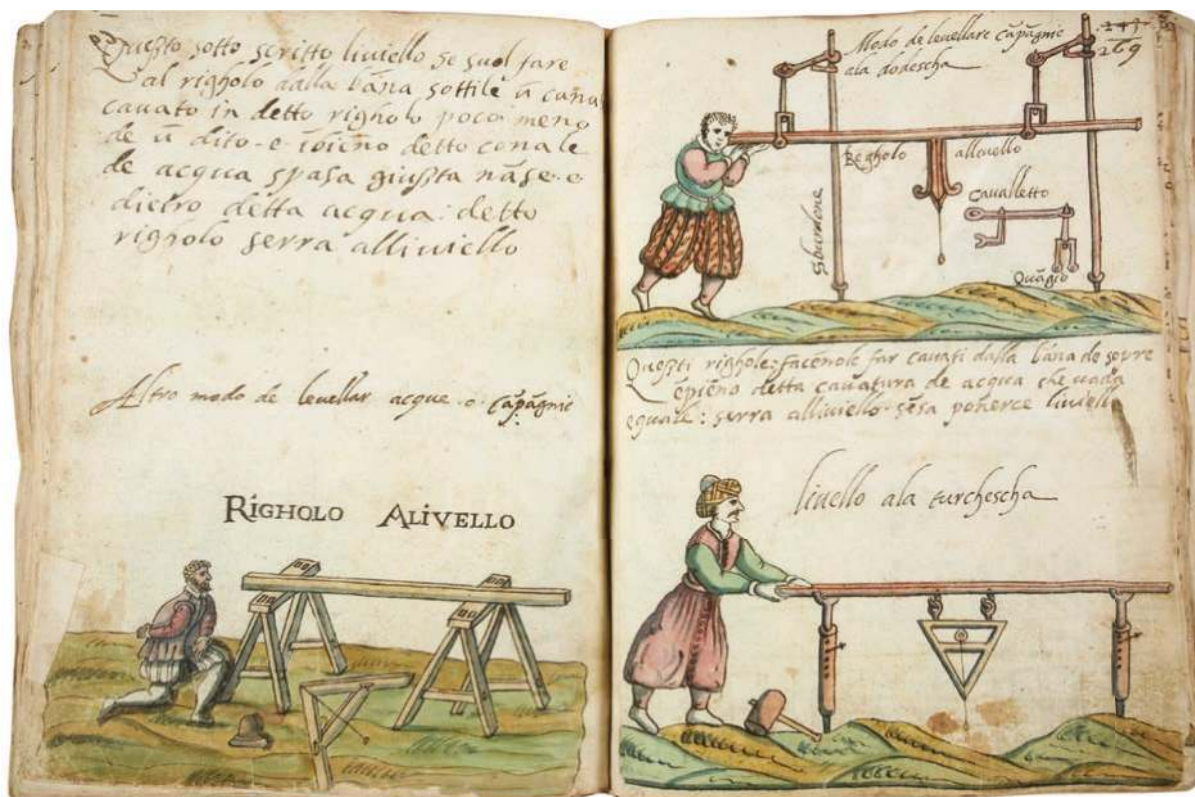 Questo sotto scritto liviello se suol fare
al righolo dalla bãna sottile ũ canal
cauato in detto righolo poco meno
de ũ dito e ĩpieno detto conale
de acqua spasa giusta nãse e
dietro detta acqua: detto
righolo serra alliuiello
Altro modo de leuellar acque o cãpagnie
RIGHOLO ALIVELLO
Modo de leuellare cãpãgnie
ala todescha
269
Regholo alliuello
Cavalletto
Sburlone
Quãgio
Questi righole: facẽnole far cauati dalla bãna de sopre
ẽpiẽno detta cauatura de acqua che uada
eguale: serra alliuiello sẽsa ponerce liuiello
liuello ala turchescha